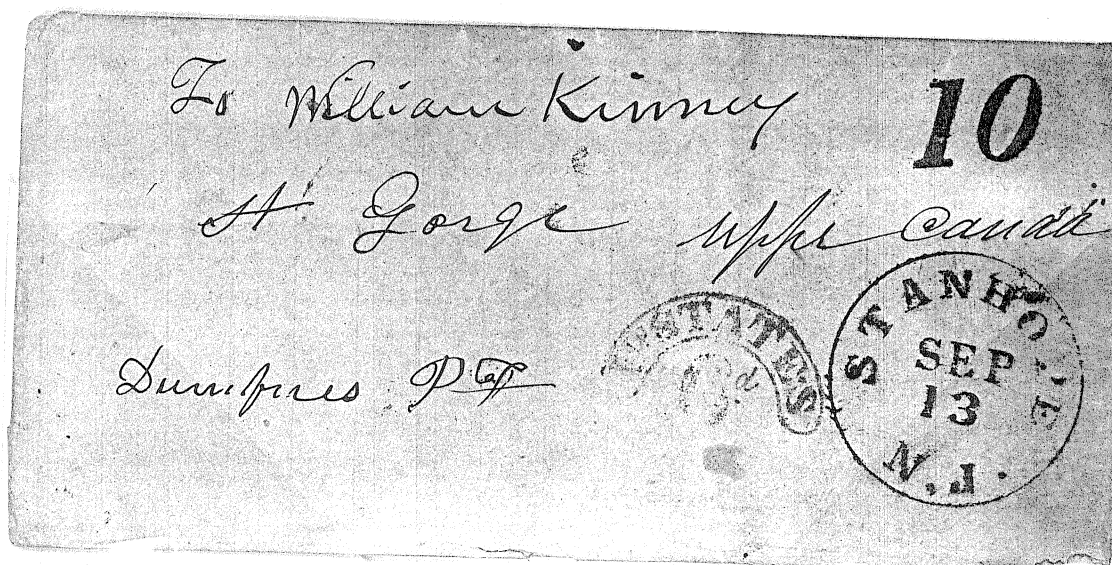 To William Kinney
10
St Gorge uppe canada
Dumfires
STATES
6d
STANHOPE
SEP
13
N.J.